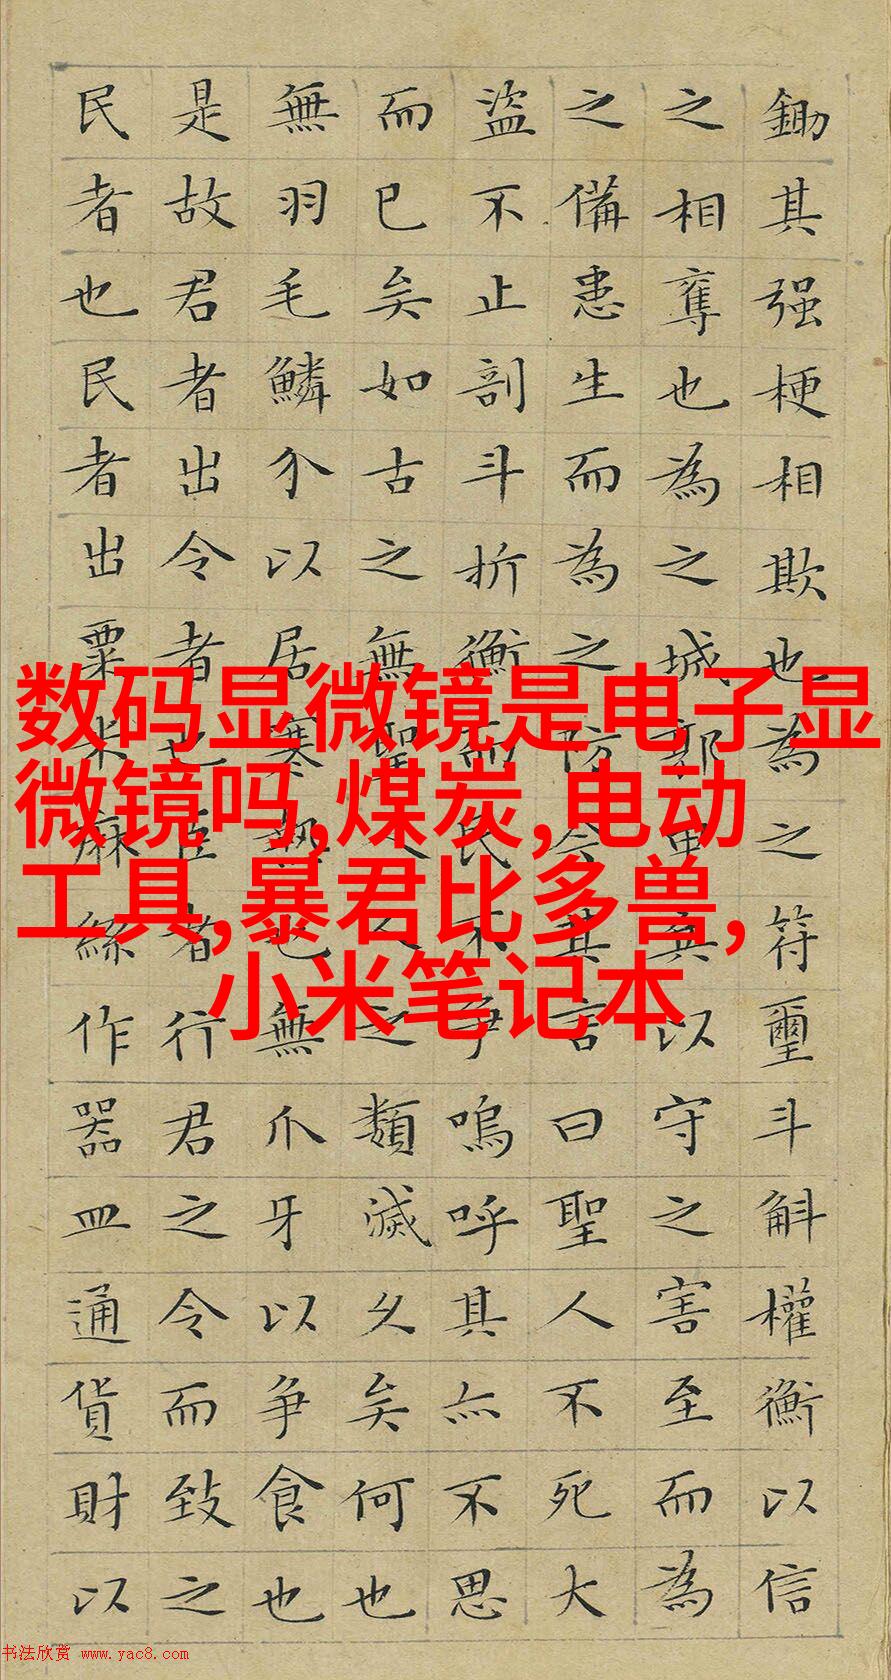 鋤其强梗相欺也為之符璽斗斛權衡以信
之相奪也為之城郭甲兵以守之害至而為
之備患生而為之防今其言曰聖人不死大
盜不止剖斗折衡而民不爭嗚呼其亦不思
而已矣如古之無聖人人之類滅久矣何也
無羽毛鱗介以居寒熱也無爪牙以爭食也
是故君者出令者也臣者行君之令而致之
民者也民者出粟米麻絲作器皿通貨財以
数码显微镜是电子显
微镜吗,煤炭,电动
工具,暴君比多兽,
小米笔记本
书法欣赏 www.yac8.com